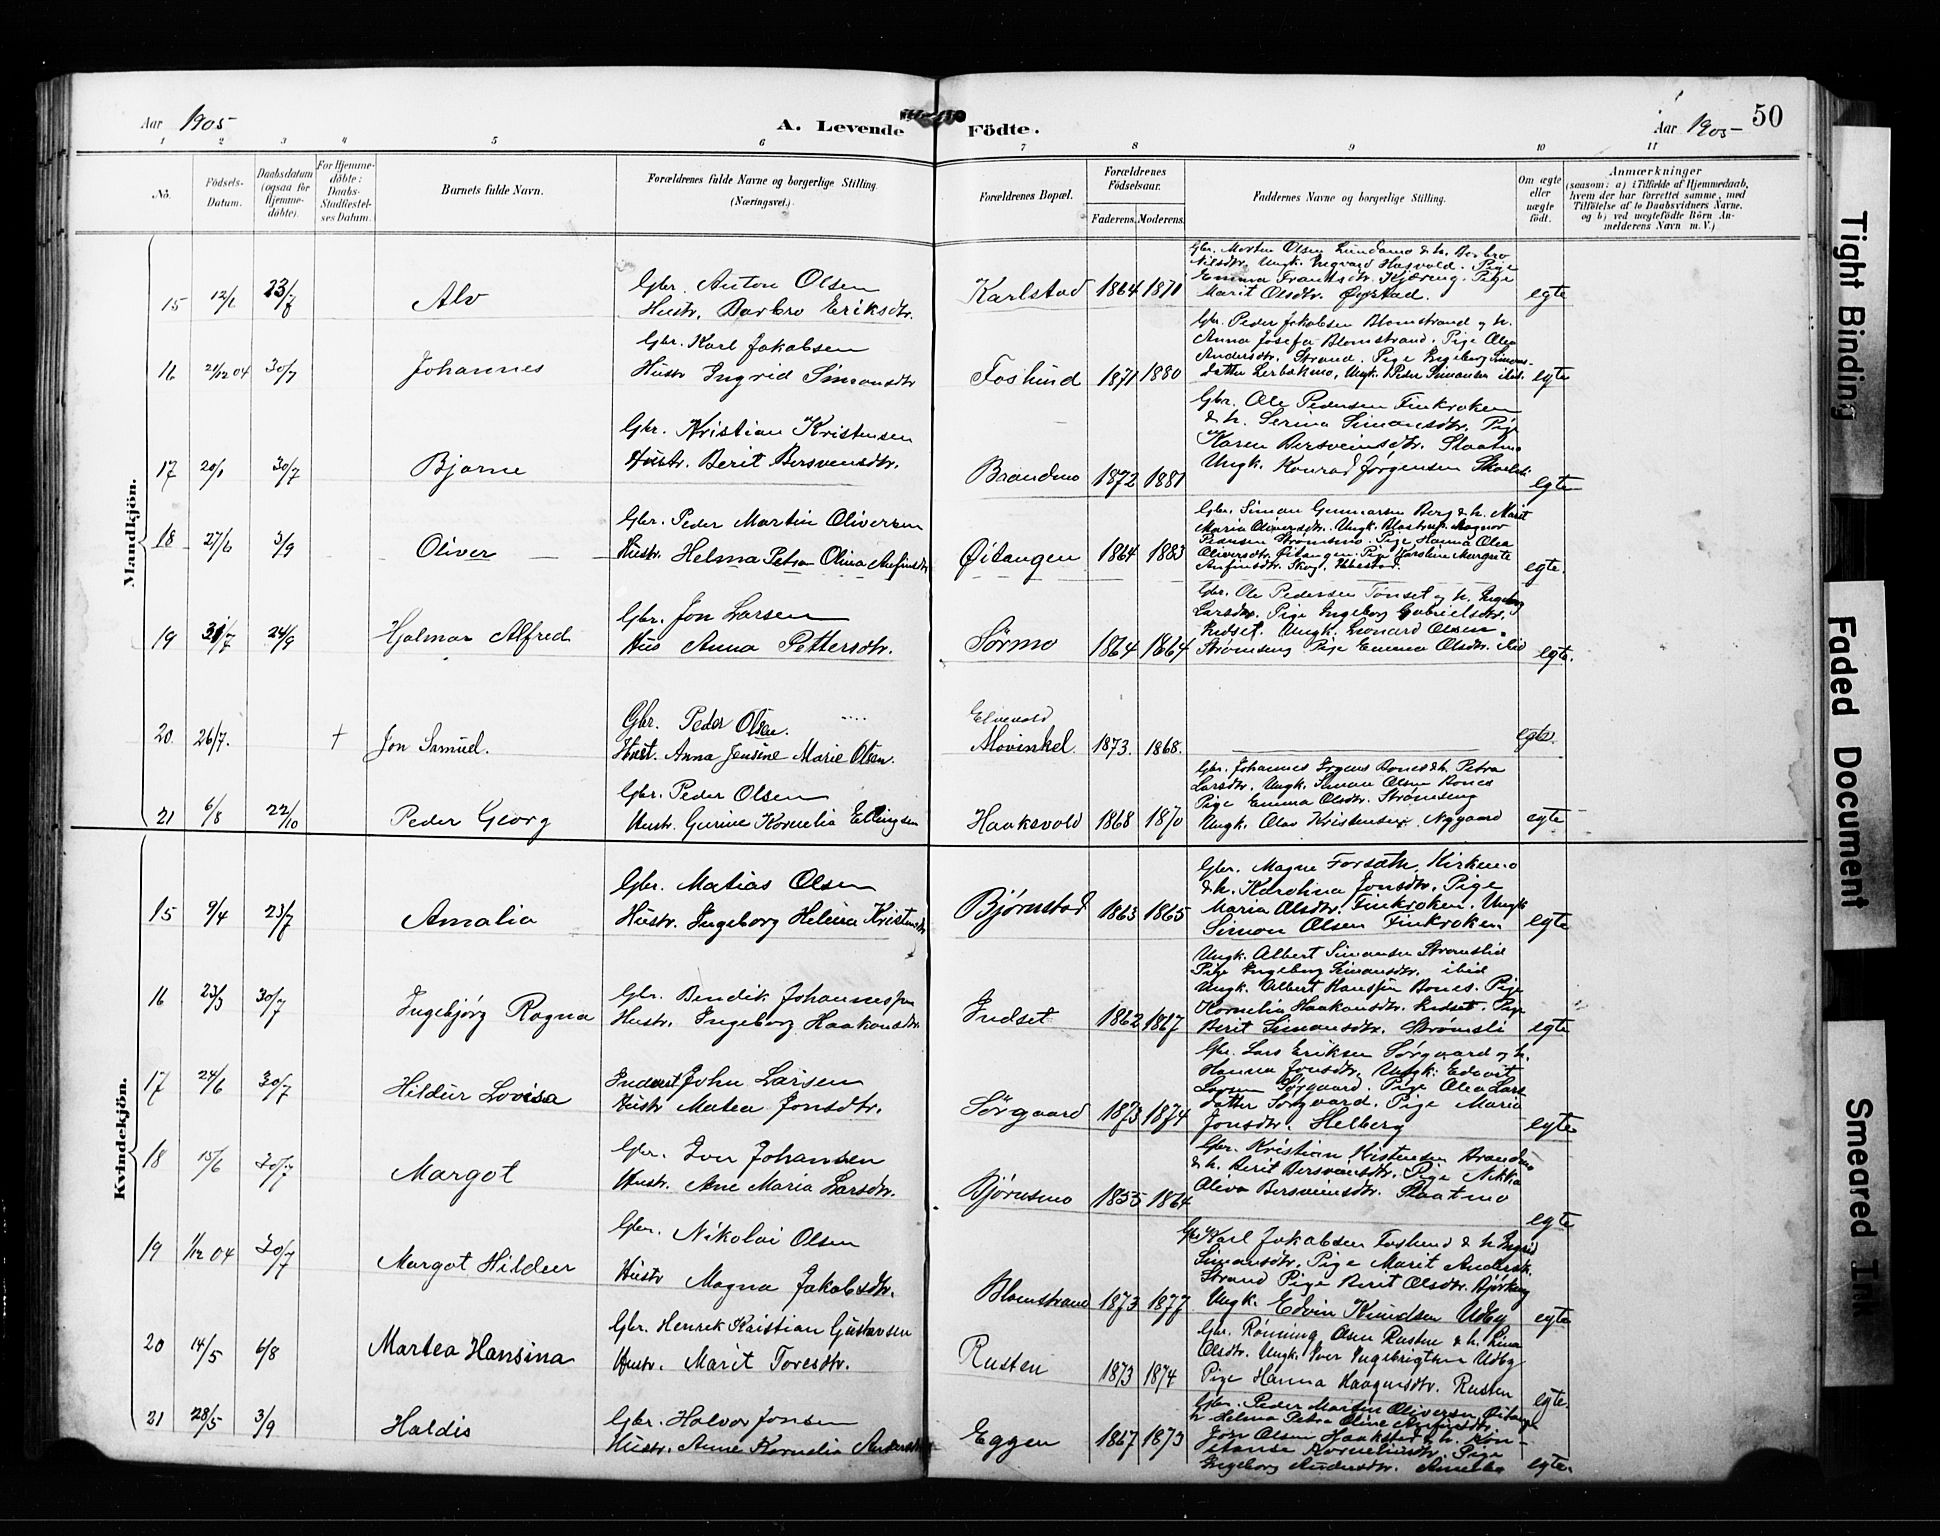 Aar 1905
A. Levende Födte.
Aar 1905
50
1 2 3 4 5 6 7 8 9 10 11
No.
Födsels-Datum.
Daabsdatum (ogsaa for Hjemme-döbte).
For Hjemme-döbte: Daabs-Stadfæstel-ses Datum.
Barnets fulde Navn.
Forældrenes fulde Navne og borgerlige Stilling. (Næringsvei.)
Forældrenes Bopæl.
Forældrenes Födselsaar.
Faderens. Moderens.
Faddernes Navne og borgerlige Stilling.
Om ægte eller uægte födt.
Anmærkninger
(saasom: a) i Tilfælde af Hjemmedaab, hvem der har forrettet samme, med Tilföielse af to Daabsvidners Navne, og b) ved uægtefödte Börn An-melderens Navn m. V.)
Mandkjön.
15 12/1 23/7 Alv
Gbr. Anton Olsen
Hustr. Barbro Eriksdtr.
Karlstad 1864 1871
Gbr. Morten Olsen Lundamo & h. Barbro
Nilsdtr. Ungk. Ingvard Pige
Emma Pige
Marit Olsdtr. Øvrstad.
egte
16 21/12 04 30/7 Johannes
Gbr. Karl Jakobsen
Hustr Ingrid Simonsdtr
Foshund 1871 1880
Gbr. Peder Jakobsen Blomstrand og h.
Anna Josefa Blomstrand. Pige Olea
Andersdtr. Strand. Pige Ingeborg Simons-
datter Ungk. Peder Simonsen ibid.
egte
17 20/1 30/7 Bjarne
Gbr. Kristian Kristensen
Hustr. Berit Bersvensdtr.
Brandmo 1872 1881
Gbr. Ole Pedersen Finkroken
& h. Serina Simonsdtr. Pige
Karen Bersveinsdtr. Slaatmo
Ungk. Konrad Jørgensen
egte
18 27/6 3/9 Oliver
Gbr. Peder Martin Oliversen
Hustr. Helma Petra Olina Anfinsdtr
Øitangen 1864 1883
Gbr. Simon Gunnarsen Berg & h. Marit
Maria Oliversdtr. Ungk.
Pedersen Strømsmo. Pige Hanna Olea
Oliversdtr. Øitangen. Pige Karoline Margrete
Anfinsdtr. Skog, Ibbestad.
egte.
19 31/7 24/9 Hjalmar Alfred
Gbr. Jon Larsen
Hus Anna Pettersdtr.
Sørmo 1864 1864
Gbr. Ole Pedersen Tønset og h. Ingeborg
Larsdtr. Pige Ingeborg Gabrielsdtr.
Indset. Ungk. Leonard Olsen
Strømseng Pige Emma Olsdtr. ibid
egte.
20 26/7. † Jon Samuel.
Gbr. Peder Olsen.
Hust. Anna Jensine Marie Olsen.
Elvevold
Movinkel 1873. 1868.
egte.
21 6/8 22/10 Peder Georg
Gbr. Peder Olsen
Hustr. Gurine Kornelia Ellingsen
Haakevold 1868 1870
Gbr. Johannes Bones & h. Petra
Larsdtr. Ungk. Simon Olsen Bones
Pige Emma Olsdtr. Strømseng
Ungk. Olav Kristensen Nygaard
egte
Kvindekjön.
15 9/4 23/7 Amalia
Gbr. Matias Olsen
Hustr. Ingeborg Helena Kristensdtr
Bjørnstad 1863 1865
Gbr. Magne Forsæth, Kirkemo
& h. Karolina Jonsdtr. Pige
Maria Olsdtr. Finkroken. Ungk
Simon Olsen Finkroken
egte
16 23/3 30/7 Ingebjørg Ragna
Gbr. Bendik Johannessen
Hustr. Ingeborg Haakonsdtr
Indset 1862 1867
Ungk. Albert Simonsen Strømslid
Pige Ingeborg Simonsdtr. ibid
Ungk. Albert Hanssen Bones. Pige
Kornelia Haakonsdtr. Indset. Pige
Berit Simonsdtr. Strømsli
egte
17 24/6 30/7 Hildur Lovisa
Inderst John Larsen
Hustr Matea Jonsdtr.
Sørgaard 1873 1874
Gbr. Lars Eriksen Sørgaard og h.
Hanna Jonsdtr. Ungk. Edvart
Larsen Sørgaard. Pige Olea Lars
datter Sørgaard. Pige Maria
Jonsdtr. Helberg
egte
18 15/6 30/7 Margot
Gbr. Iver Johansen
Hustr. Ane Maria Larsdtr.
Bjørnsmo 1855 1864
Gbr. Kristian Kristensen Brandmo
& h. Berit Bersvensdtr. Pige
Oliva Bersveinsdtr. Slaatmo
egte
19 1/12 04 30/7 Margot Hildur
Gbr. Nikolai Olsen
Hustr Magna Jakobsdtr.
Blomstrand 1873 1877
Gbr Karl Jakobsen Foshund & h Ingrid
Simonsdtr. Pige Marit Andersd.
Strand Pige Berit Olsdtr. Bjørkeng
Ungk. Edvin Knudsen Udby
egte
20 14/5 6/8 Martea Hansina
Gbr. Henrik Kristian Gustavsen
Hustr. Marit Toresdtr.
Rusten 1873 1874
Gbr. Rønning Olsen Rusten & h. Lina
Olsdtr. Ungk. Iver Ingebrigtsen Udby
Pige Hanna Haagensdtr. Rusten
egte.
21 28/5 3/9 Haldis
Gbr. Halvor Jonsen
Hustr. Anne Kornelia Andersdtr
Eggen 1867 1873
Gbr. Peder Martin Oliversen, Øitangen
h. Helma Petra Oline Anfinsdtr.
Jon Olsen Haakstad & h. Kon-
stanse Korneliusdtr. Pige
Ingeborg Andersdtr.
egte.
Tight Binding
Faded Document
Smeared Ink